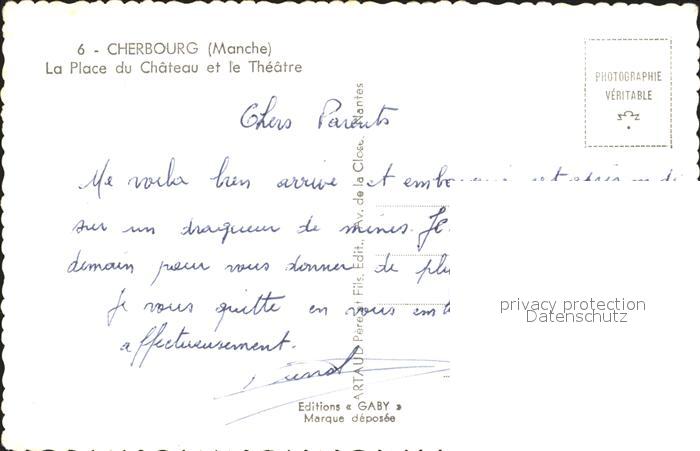 6 - CHERBOURG (Manche)
La Place du Château et le Théâtre
PHOTOGRAPHIE
VÉRITABLE
Chers Parents
Me voila bien arrivé et
sur un dragueur de mines. Je
demain pour vous donner de
Je vous quitte en vous
affectueusement.
ARTAUD Père et Fils, Edit., Av. de la Close, Nantes
privacy protection
Datenschutz
Editions « GABY »
Marque déposée